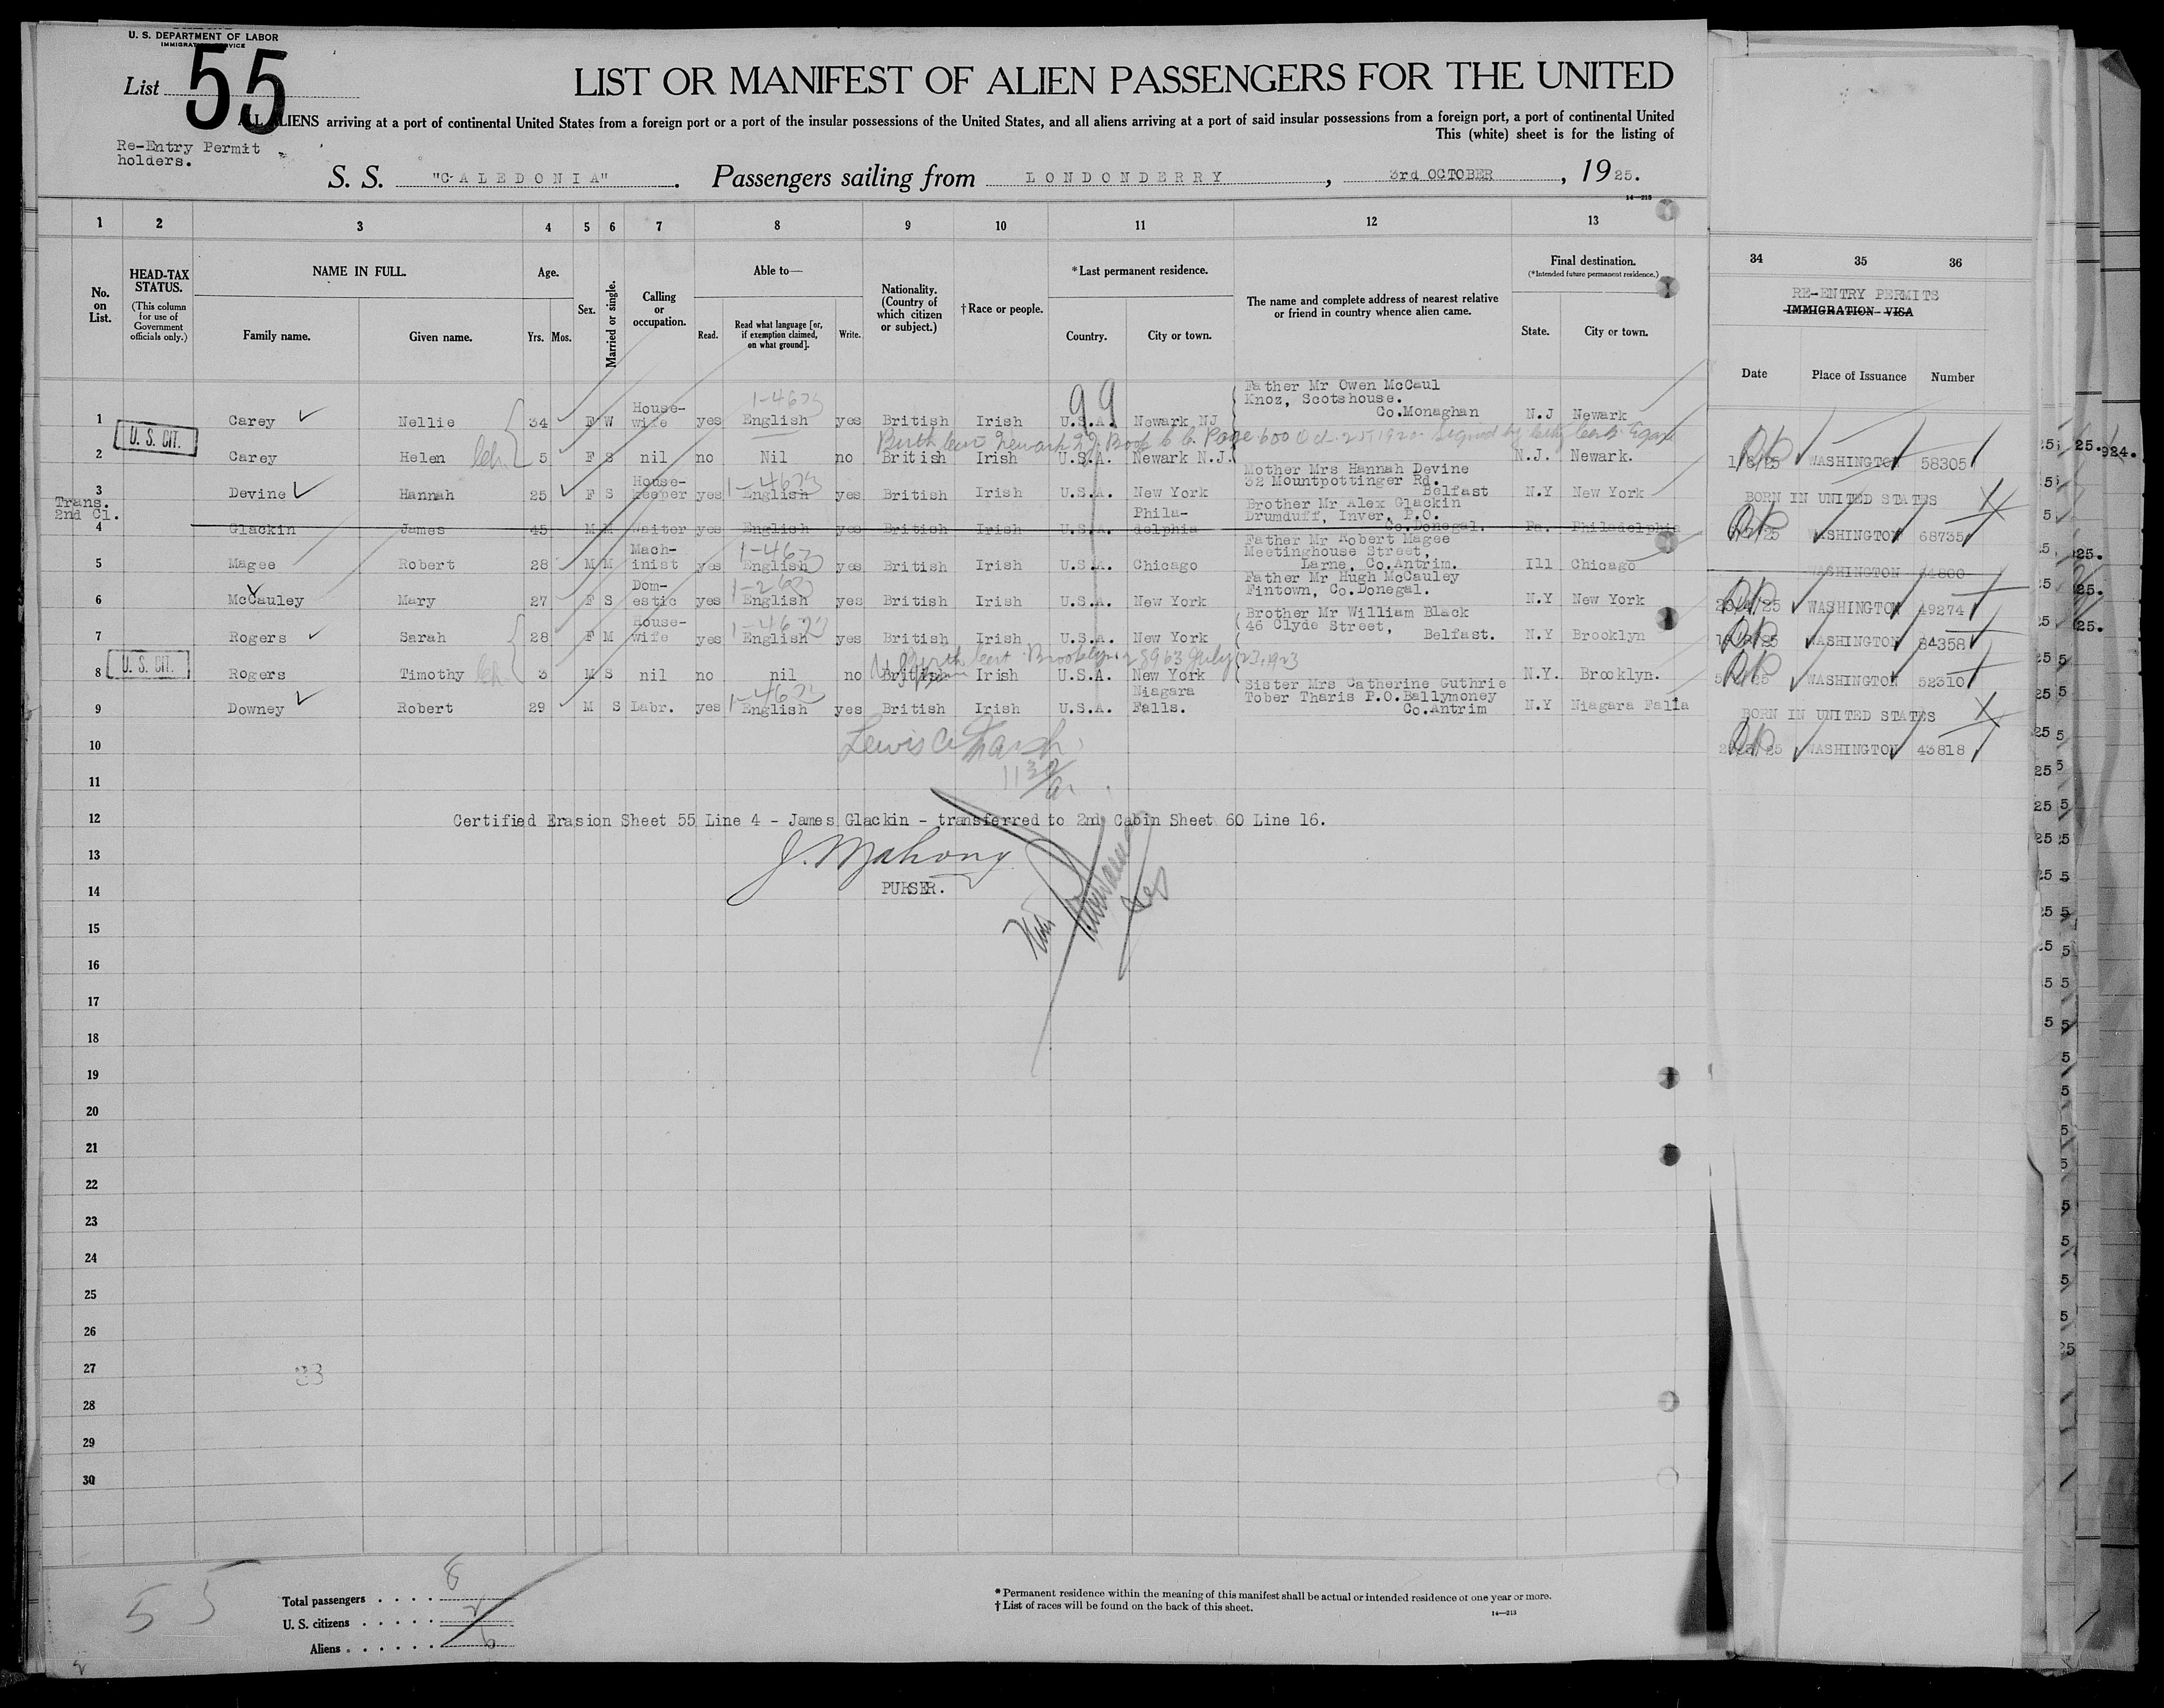 U. S. DEPARTMENT OF LABOR
IMMIGRATION SERVICE
List 55
LIST OR MANIFEST OF ALIEN PASSENGERS FOR THE UNITED
ALL ALIENS arriving at a port of continental United States from a foreign port or a port of the insular possessions of the United States, and all aliens arriving at a port of said insular possessions from a foreign port, a port of continental United
This (white) sheet is for the listing of
Re-Entry Permit
holders.
S. S. "CALEDONIA". Passengers sailing from LONDONDERRY, 3rd OCTOBER, 1925.
14—213
1 2 3 4 5 6 7 8 9 10 11 12 13 34 35 36
No. on List.
HEAD-TAX STATUS.
(This column for use of Government officials only.)
NAME IN FULL.
Family name. Given name.
Age.
Yrs. Mos.
Sex.
Married or single.
Calling or occupation.
Able to—
Read. Read what language [or, if exemption claimed, on what ground]. Write.
Nationality. (Country of which citizen or subject.)
† Race or people.
* Last permanent residence.
Country. City or town.
The name and complete address of nearest relative or friend in country whence alien came.
Final destination.
(* Intended future permanent residence.)
State. City or town.
RE-ENTRY PERMITS
IMMIGRATION VISA
Date Place of Issuance Number
99
1 Carey Nellie 34 F W House-wife yes English yes British Irish U.S.A. Newark NJ Father Mr Owen McCaul Knoz, Scotshouse. Co.Monaghan N.J Newark
1-4633
U. S. CIT.
2 Carey Helen 5 F S nil no Nil no British Irish U.S.A. Newark N.J. N.J. Newark.
3 Devine Hannah 25 F S House-keeper yes English yes British Irish U.S.A. New York Mother Mrs Hannah Devine 32 Mountpottinger Rd. Belfast N.Y New York
Trans.
2nd Cl.
4 Glackin James 45 M M Waiter yes English yes British Irish U.S.A. Phila-delphia Brother Mr Alex Glackin Drumduff, Inver, P.O. Co.Donegal. Pa. Philadelphia
5 Magee Robert 28 M M Mach-inist yes English yes British Irish U.S.A. Chicago Father Mr Robert Magee Meetinghouse Street, Larne, Co.Antrim. Ill Chicago
6 McCauley Mary 27 F S Dom-estic yes English yes British Irish U.S.A. New York Father Mr Hugh McCauley Fintown, Co.Donegal. N.Y New York
7 Rogers Sarah 28 F M House-wife yes English yes British Irish U.S.A. New York Brother Mr William Black 46 Clyde Street, Belfast. N.Y Brooklyn
U. S. CIT.
8 Rogers Timothy 3 M S nil no nil no British Irish U.S.A. New York N.Y. Brooklyn.
9 Downey Robert 29 M S Labr. yes English yes British Irish U.S.A. Niagara Falls. Sister Mrs Catherine Guthrie Tober Tharis P.O.Ballymoney Co.Antrim N.Y Niagara Falls
WASHINGTON 58305
BORN IN UNITED STATES
WASHINGTON 68735
WASHINGTON
WASHINGTON 49274
WASHINGTON 84358
WASHINGTON 52310
BORN IN UNITED STATES
WASHINGTON 43818
10
11
12 Certified Erasion Sheet 55 Line 4 - James Glackin - transferred to 2nd Cabin Sheet 60 Line 16.
13 J. Mahony
14 PURSER.
15
16
17
18
19
20
21
22
23
24
25
26
27
28
29
30
33
55
Total passengers . . . . 8
U. S. citizens . . . . . 2
Aliens . . . . . . 6
* Permanent residence within the meaning of this manifest shall be actual or intended residence of one year or more.
† List of races will be found on the back of this sheet.
14—213